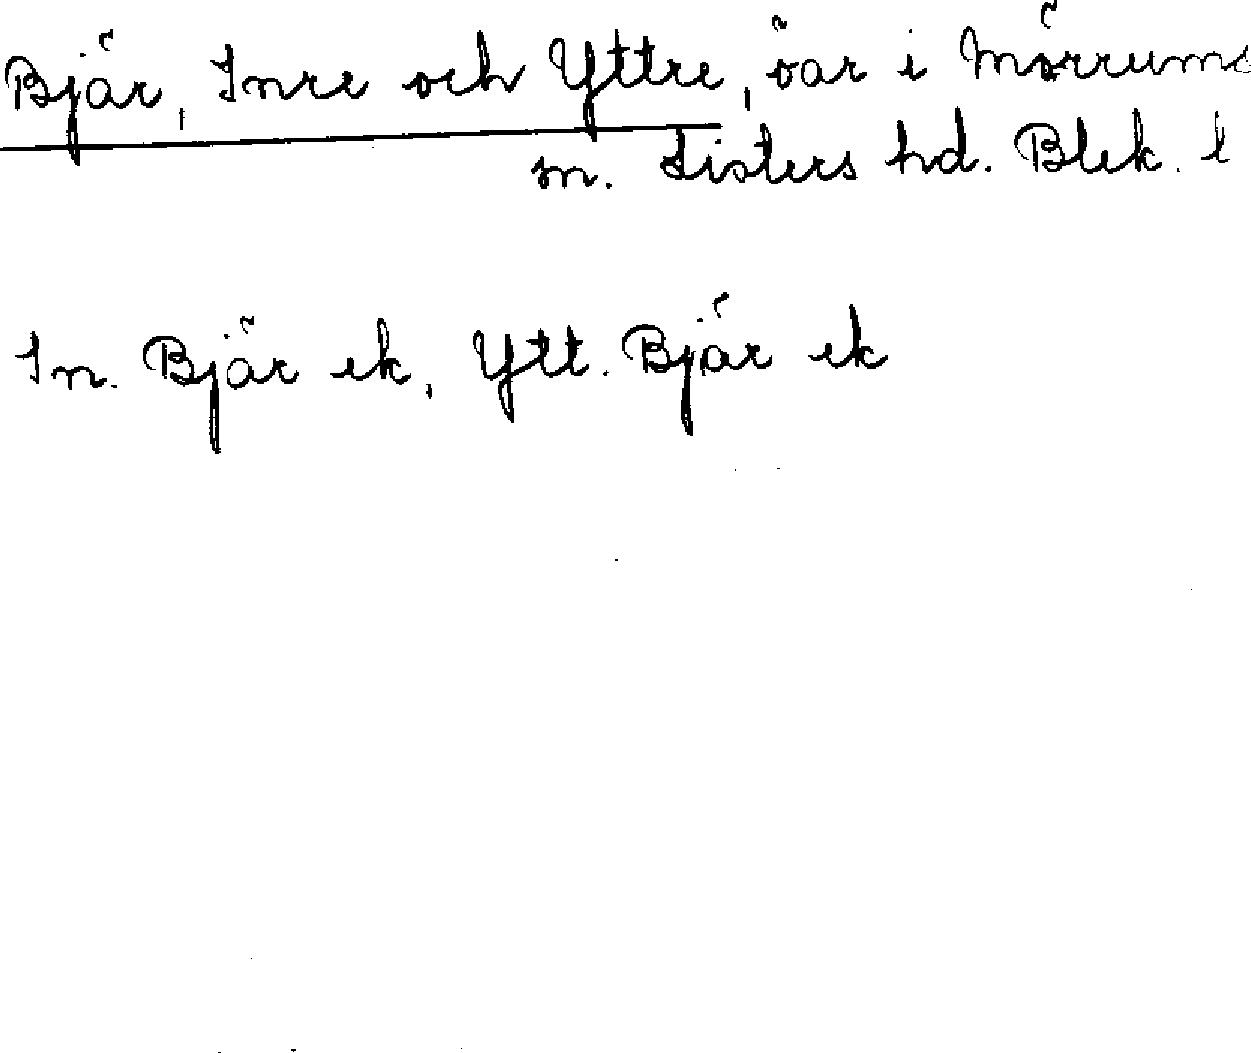 Bjär, Inre och Yttre, öar i Mörrums
m. Listers hd. Blek. l
In. Bjär ek, Ytt. Bjär ek